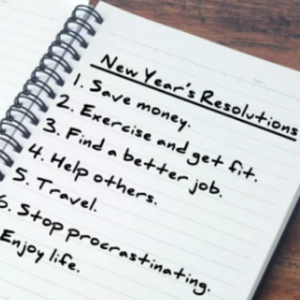 New Year's Resolutions
1. Save money.
2. Exercise and get fit.
3. Find a better job.
4. Help others.
5. Travel.
6. Stop procrastinating.
Enjoy life.